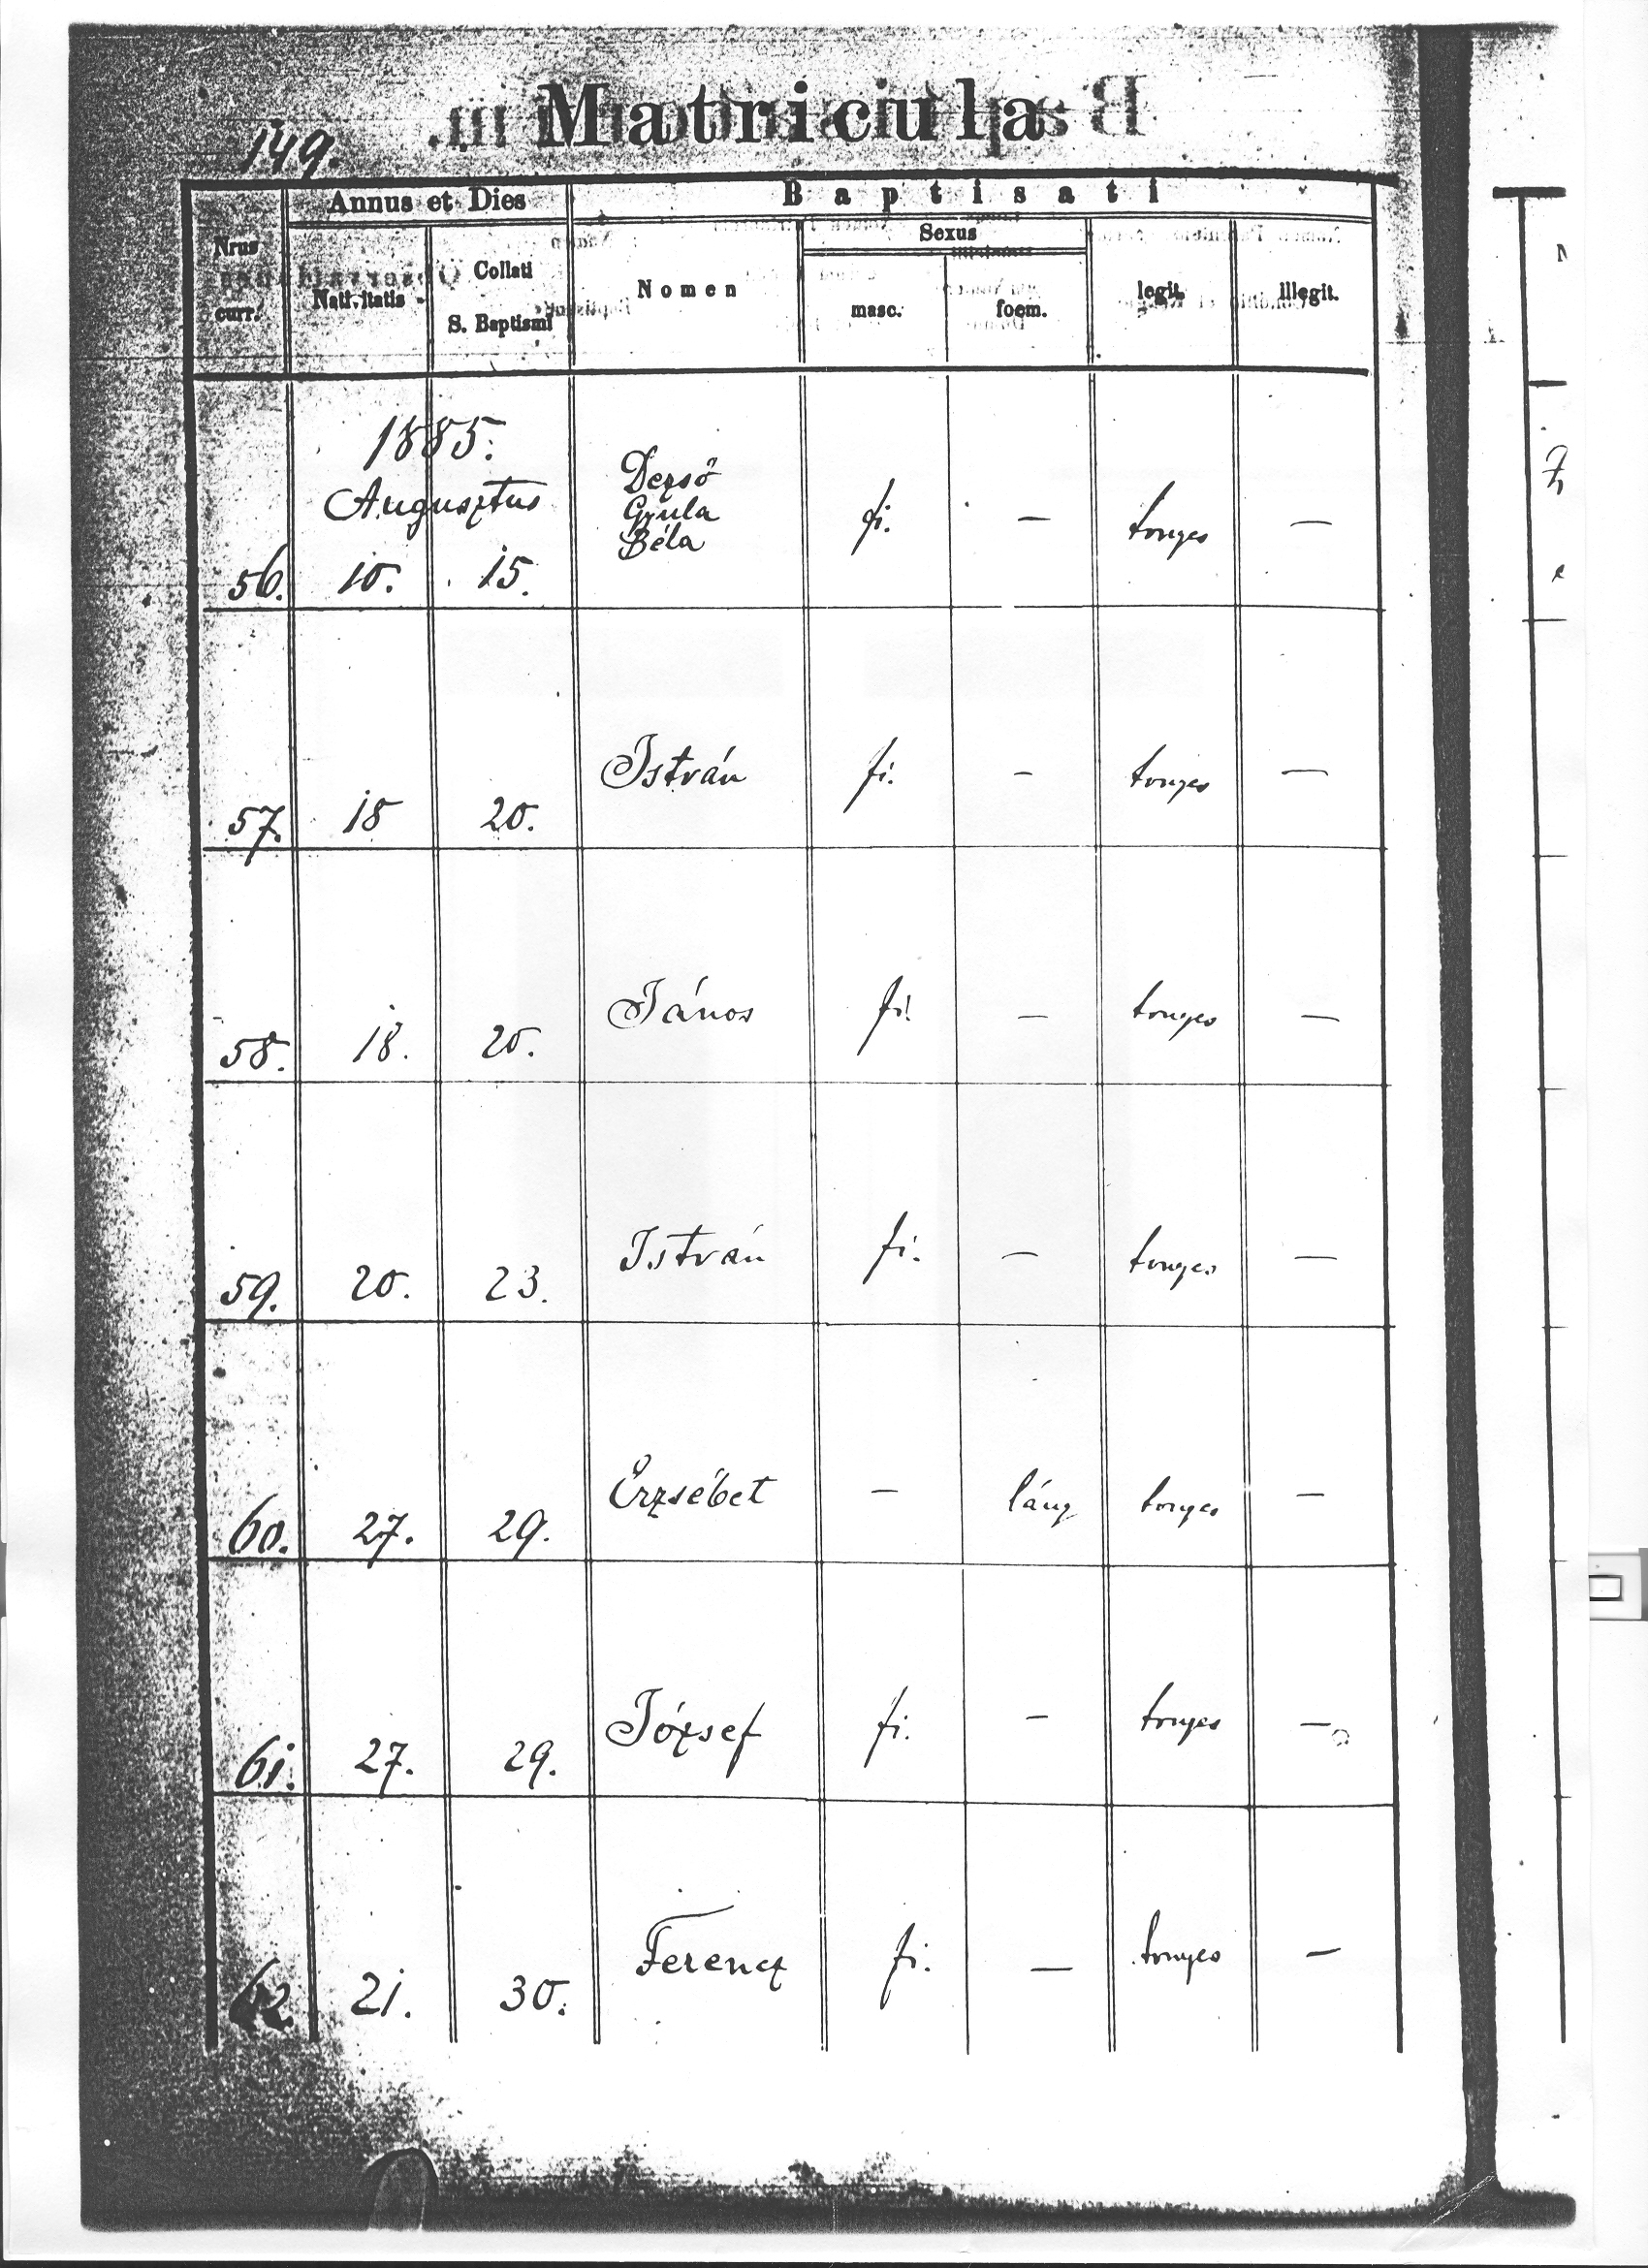 149.
Matricula
Annus et Dies
Baptisati
Nrus
curr.
Nativitatis
Collati
S. Baptismi
Nomen
Sexus
masc.
foem.
legit.
illegit.
1885.
Augusztus
Dezső
Gyula
Béla
56. 10. 15. fi. — —
57. 18 20. István fi. — —
58. 18. 20. János fi. — —
59. 20. 23. István fi. — —
60. 27. 29. Erzsébet — lány —
61. 27. 29. József fi. — —
62. 21. 30. Ferencz fi. — —